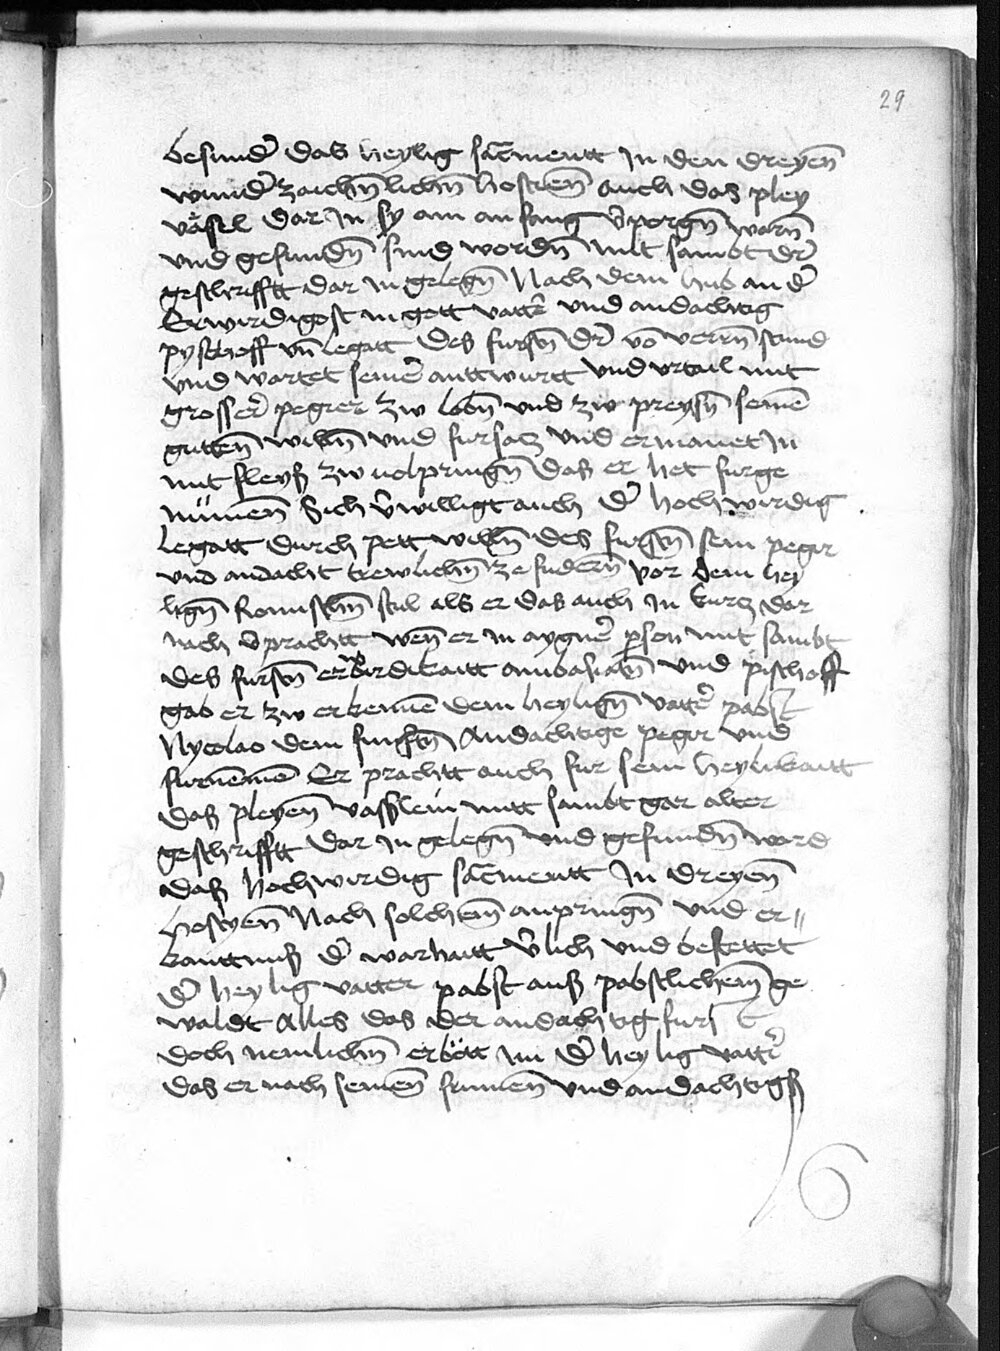 29
besunder̄ das heylig sacm̄entt Jn den dreyen̄
wunder̄ zaichn̄lichn̄ hostien̄ auch das pley
väsel dar Jn sy am anfang v̄porgn̄ warn̄
vnd gefundn̄ sind wordn̄ mit sambt der̄
geschrifftt dar in gelegn̄ Nach dem hub an d̄
Erwirdigost in gott vatter̄ vnd andachtig
pyschoff vn̄ legatt des fursn̄ der̄ vō verrn̄ stund
vnd wartet seiner̄ anttwurtt vnd vrtail mit
grosser̄ pegier zw lobn̄ vnd zw preysn̄ seinē
gutten̄ willn̄ vnd fursatz vnd ermanet Jn
mit fleyß zw uolpringn̄ das er het furge
nümen̄ Sich v̄willigt auch d̄ hochwirdig
legatt durch pett willn̄ des fursn̄ sein pegir
vnd andacht trewlichn̄ ze fudern̄ vor dem hey
lign̄ Romischn̄ stul als er das auch in kurcz dar
nach v̄prachtt wen̄ er in aygner̄ p̱son mit sambt
des fursn̄ erwirdikaitt ambasiatn̄ vnd pischoff
gab er zw erkennē dem heylign̄ vatter̄ pabst
Nycolao dem furstn̄ Andachtige pegir vnd
furnemē Er prachtt auch fur sein heylikaitt
das pleyen̄ vasslein mitt sambt gar alter
geschrifftt dar in gelegn̄ vnd gefundn̄ ward
daß hochwirdig sacm̄entt Jn dreyen̄
hostyen̄ Nach solchem̄ anpringn̄ vnd er〃
kanttnuß d̄ warhaitt v̄lich vnd bestettet
d̄ heylig vatter pabst auß pabstlichem̄ ge
waldt Alles das der andachtig furst
doch nemlichn̄ erbött im d̄ heylig vatter̄
das er nach seinen̄ sinnen̄ vnd andachtign̄